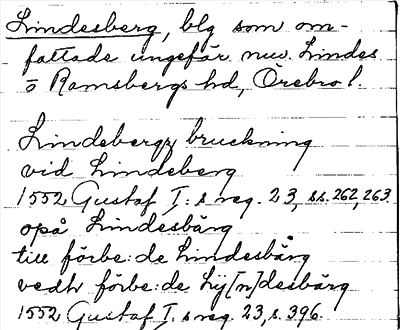 Lindesberg, blg som om-
fattade ungefär nuv. Lindes
o Ramsbergs hd, Örebro l.
Lindebergz bruckning
vid Lindeberg
1552 Gustaf I:s reg. 23, ss. 262, 263.
opå Lindesbärg
till förbe:de Lindesbärg
vedh förbe:de Lij[n]desbärg
1552 Gustaf I.s reg. 23, s. 396.